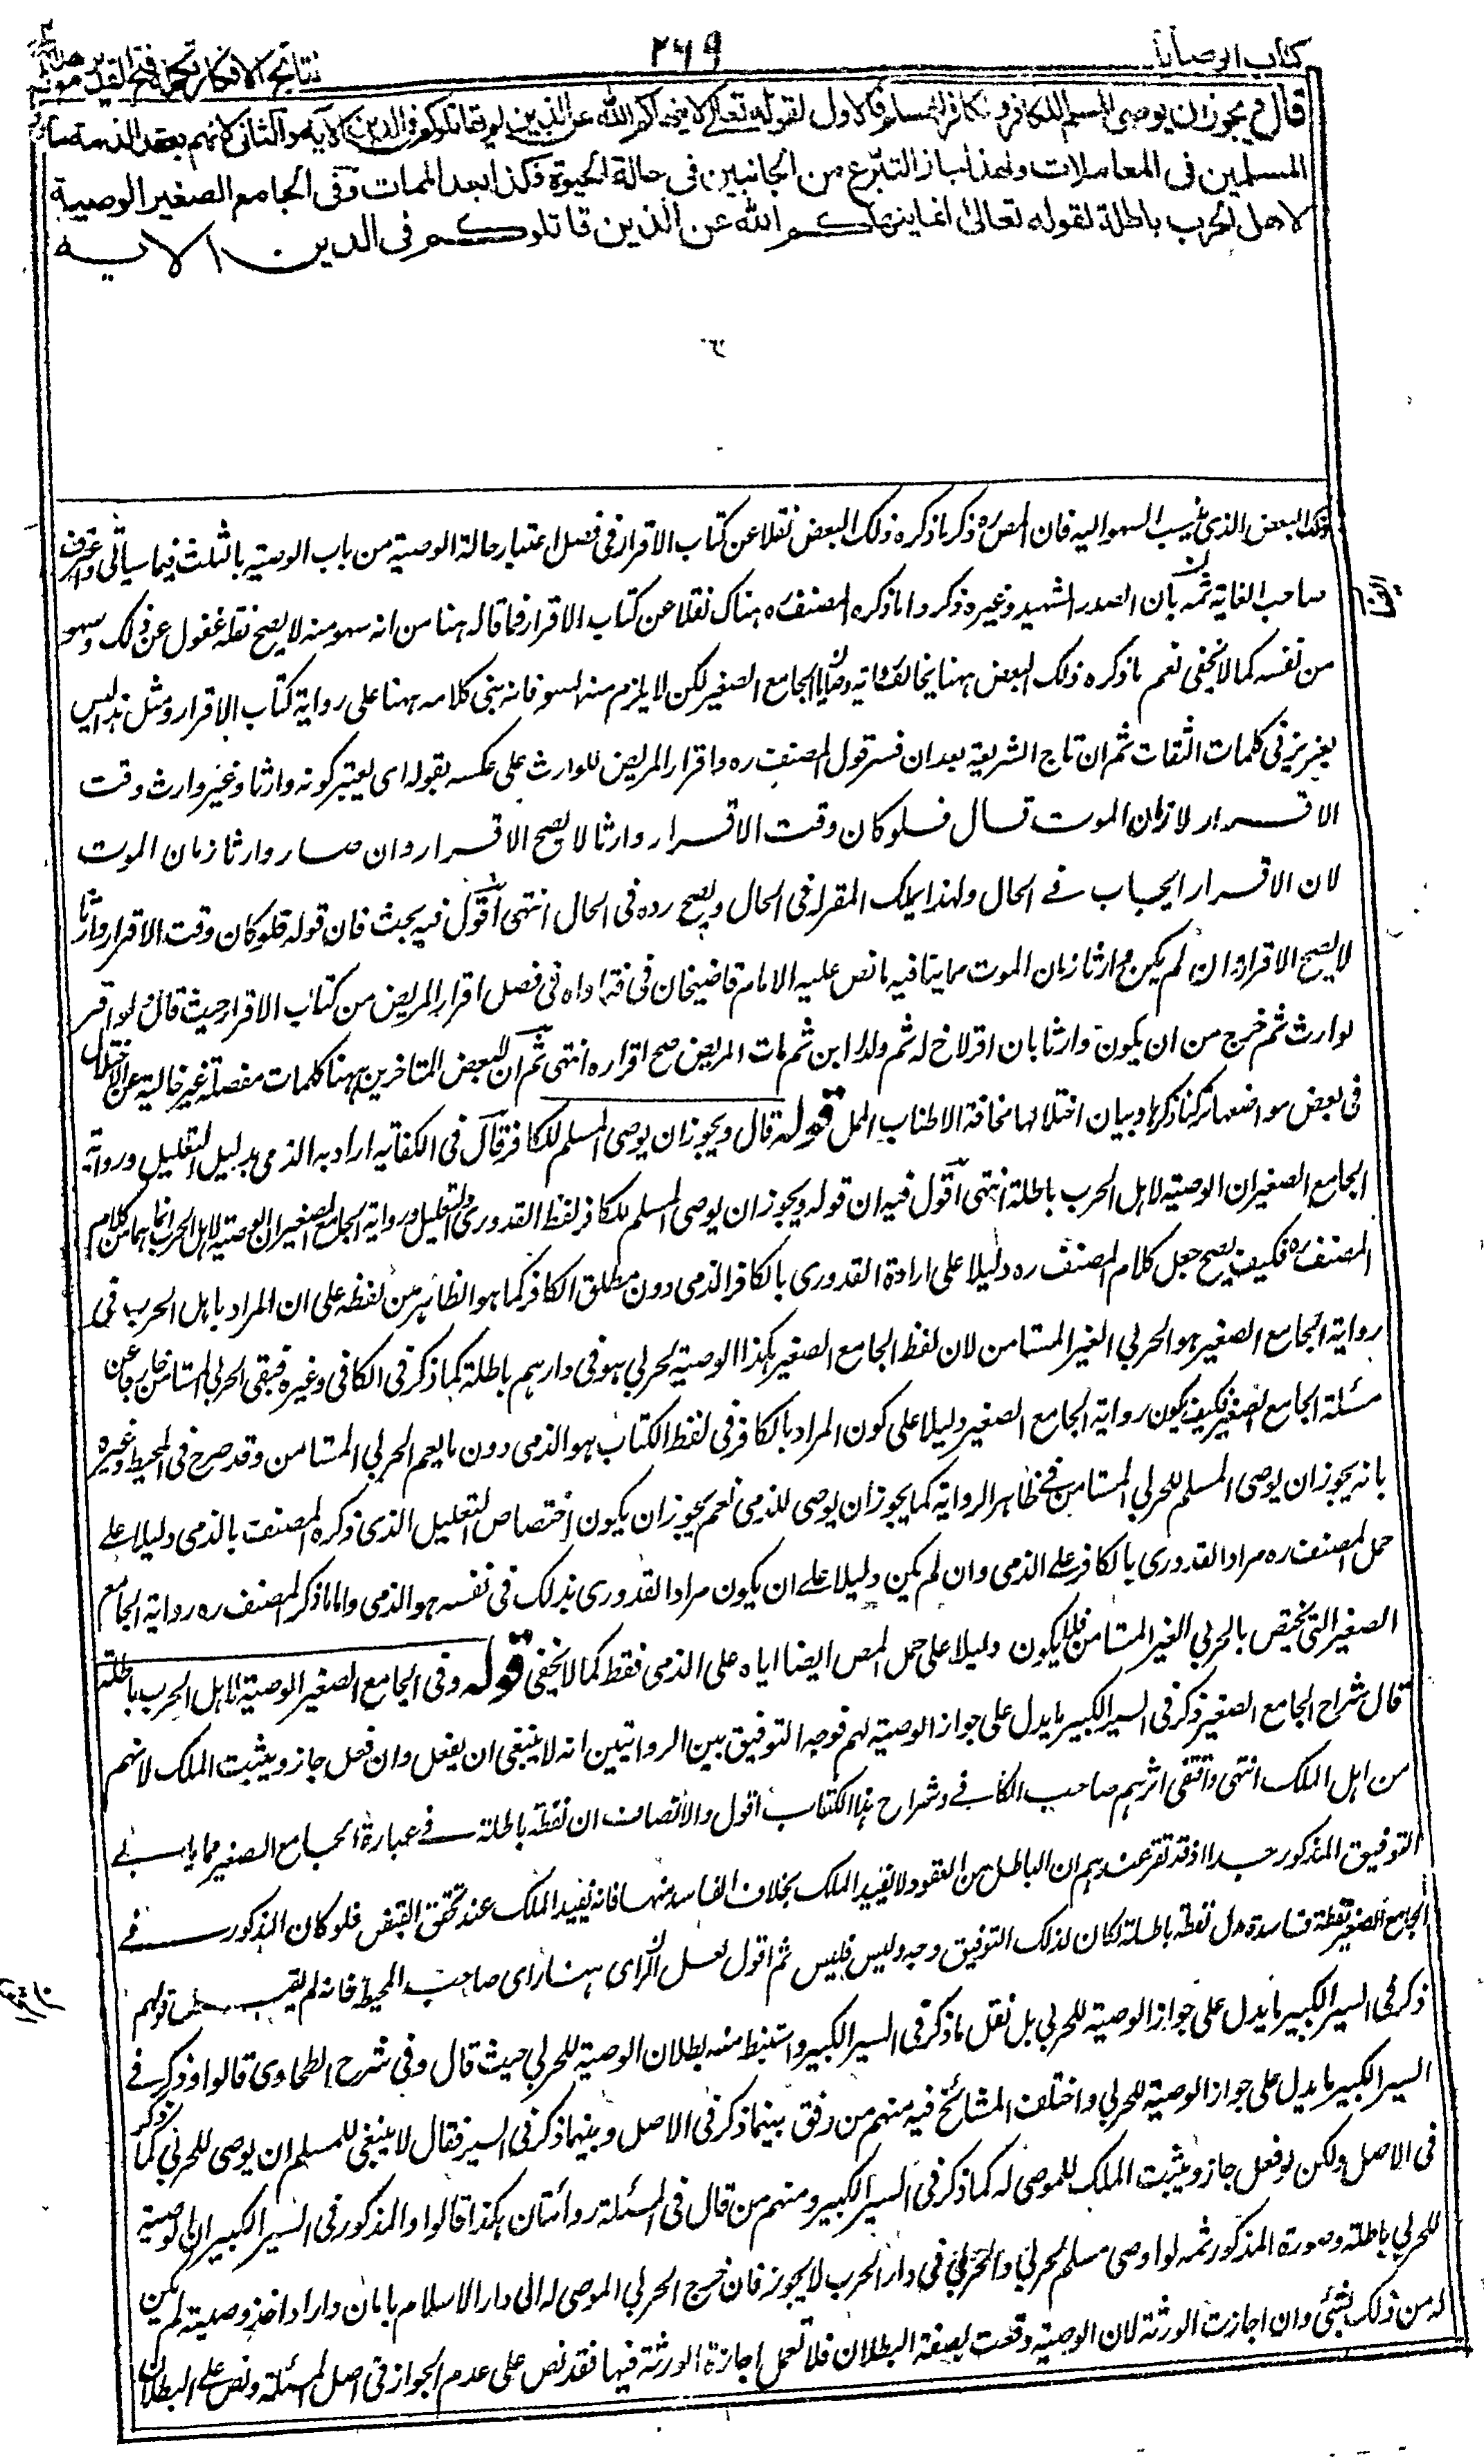 كتاب الوصايا
٢٦٩
نتائج الافكار تكملة فتح القدير مع هداية
قال ويجوز ان يوصى المسلم للكافر والكافر للمسلم فالاول لقوله تعالى لا ينهاكم الله عن الذين لم يقاتلوكم فى الدين الآية والثانى لانهم بعقد الذمة ساووا
المسلمين فى المعاملات ولهذا جاز التبرع من الجانبين فى حالة الحيوة فكذا بعد الممات وفى الجامع الصغير الوصية
لاهل الحرب باطلة لقوله تعالى انما ينهاكم الله عن الذين قاتلوكم فى الدين الاية
ذلك البعض الذى ينسب السهو اليه فان المص ره ذكر ما ذكره ذلك البعض نقلا عن كتاب الاقرار فى فصل اعتبار حالة الوصية من باب الوصية بالثلث فيما سيأتى واعترف
صاحب الغاية ثمه بان الصدر الشهيد وغيره ذكروا ما ذكره المصنف ره هناك نقلا عن كتاب الاقرار فما قاله هنا من انه سهو منه لا يصح نقله غفول عن ذلك وسهو
من نفسه كما لا يخفى نعم ما ذكره ذلك البعض ههنا يخالف رواية وصايا الجامع الصغير لكن لا يلزم منه السهو فانه بنى كلامه ههنا على رواية كتاب الاقرار ومثل هذا ليس
بعزيز فى كلمات الثقات ثم ان تاج الشريعة بعد ان فسر قول المصنف ره واقرار المريض للوارث على عكسه بقوله اى يعتبر كونه وارثا وغير وارث وقت
الاقرار لا زمان الموت قال فلو كان وقت الاقرار وارثا لا يصح الاقرار وان صار وارثا زمان الموت
لان الاقرار ايجاب فى الحال ولهذا يملك المقر له فى الحال ويصح رده فى الحال انتهى اقول فيه بحث فان قوله فلو كان وقت الاقرار وارثا
لا يصح الاقرار وان لم يكن وارثا زمان الموت مما ينافيه ما نص عليه الامام قاضيخان فى فتاواه فى فصل اقرار المريض من كتاب الاقرار حيث قال لو اقر
لوارث ثم خرج من ان يكون وارثا بان اقر لاخ له ثم ولد ابن ثم مات المريض صح اقراره انتهى ثم ان لبعض المتاخرين ههنا كلمات مفصلة غير خالية عن الاختلال
فى بعض مواضعها تركنا ذكرها وبيان اختلالها مخافة الاطناب الممل قوله قال ويجوز ان يوصى المسلم للكافر قال فى الكفاية اراد به الذمى بدليل التعليل ورواية
الجامع الصغير ان الوصية لاهل الحرب باطلة انتهى اقول فيه ان قوله ويجوز ان يوصى المسلم للكافر لفظ القدورى والتعليل ورواية الجامع الصغير ان الوصية لاهل الحرب انما هما من كلام
المصنف ره فكيف يصح جعل كلام المصنف ره دليلا على ارادة القدورى بالكافر الذمى دون مطلق الكافر كما هو الظاهر من لفظه على ان المراد باهل الحرب فى
رواية الجامع الصغير هو الحربى الغير المستامن لان لفظ الجامع الصغير هكذا الوصية لحربى هو فى دارهم باطلة كما ذكر فى الكافى وغيره فبقى الحربى المستامن خارجا عن
مسئلة الجامع الصغير فكيف يكون رواية الجامع الصغير دليلا على كون المراد بالكافر فى لفظ الكتاب هو الذمى دون ما يعم الحربى المستامن وقد صرح فى المحيط وغيره
بانه يجوز ان يوصى المسلم للحربى المستامن فى ظاهر الرواية كما يجوز ان يوصى للذمى نعم يجوز ان يكون اختصاص التعليل الذى ذكره المصنف بالذمى دليلا على
حمل المصنف ره مراد القدورى بالكافر على الذمى وان لم يكن دليلا على ان يكون مراد القدورى بذلك فى نفسه هو الذمى واما ما ذكر المصنف ره رواية الجامع
الصغير التى يختص بالحربى الغير المستامن فلا يكون دليلا على حمل المص ايضا اياه على الذمى فقط كما لا يخفى قوله وفى الجامع الصغير الوصية لاهل الحرب باطلة
قال شراح الجامع الصغير ذكر فى السير الكبير ما يدل على جواز الوصية لهم فوجه التوفيق بين الروايتين انه لا ينبغى ان يفعل وان فعل جاز ويثبت الملك لانهم
من اهل الملك انتهى واقتفى اثرهم صاحب الكافى وشراح هذا الكتاب اقول والانصاف ان لفظة باطلة فى عبارة الجامع الصغير مما يابى
التوفيق المذكور جدا اذ قد تقرر عندهم ان الباطل من العقود لا يفيد الملك بخلاف الفاسد منها فانه يفيد الملك عند تحقق القبض فلو كان المذكور فى
الجامع الصغير لفظة فاسدة بدل لفظة باطلة لكان لذلك التوفيق وجه وليس فليس ثم اقول لعل الراى هنا راى صاحب المحيط فانه لم يقبل قولهم
ذكر فى السير الكبير ما يدل على جواز الوصية للحربى بل نقل ما ذكر فى السير الكبير واستنبط منه بطلان الوصية للحربى حيث قال وفى شرح الطحاوى قالوا وذكر فى
السير الكبير ما يدل على جواز الوصية للحربى واختلف المشائخ فيه منهم من وفق بينما ذكر فى الاصل وبينما ذكر فى السير فقال لا ينبغى للمسلم ان يوصى للحربى كما ذكر
فى الاصل ولكن لو فعل جاز ويثبت الملك للموصى له كما ذكر فى السير الكبير ومنهم من قال فى المسئلة روايتان هكذا قالوا والمذكور فى السير الكبير ان الوصية
للحربى باطلة وصورة المذكور ثمه لو اوصى مسلم لحربى والحربى فى دار الحرب لا يجوز فان خرج الحربى الموصى له الى دار الاسلام بامان واراد اخذ وصيته لم يكن
له من ذلك شئ وان اجازت الورثة لان الوصية وقعت بصفة البطلان فلا تعمل اجازة الورثة فيها فقد نص على عدم الجواز فى اصل المسئلة ونص على البطلان